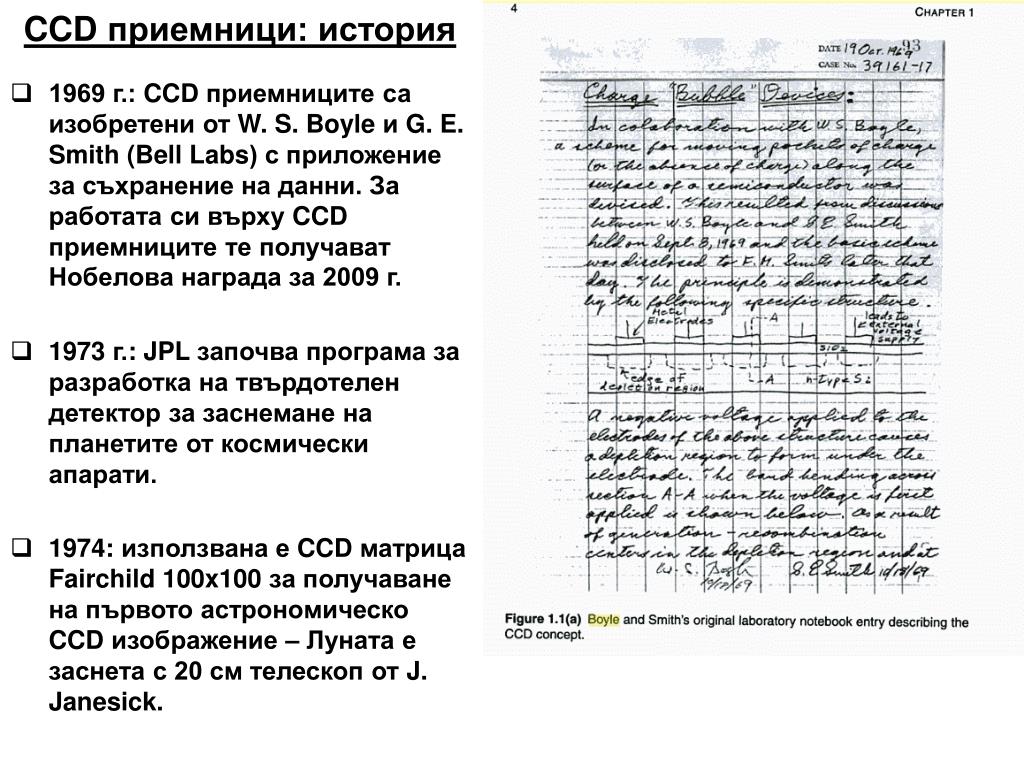 CCD приемници: история
❑ 1969 г.: CCD приемниците са
изобретени от W. S. Boyle и G. E.
Smith (Bell Labs) с приложение
за съхранение на данни. За
работата си върху CCD
приемниците те получават
Нобелова награда за 2009 г.
❑ 1973 г.: JPL започва програма за
разработка на твърдотелен
детектор за заснемане на
планетите от космически
апарати.
❑ 1974: използвана е CCD матрица
Fairchild 100x100 за получаване
на първото астрономическо
CCD изображение – Луната е
заснета с 20 см телескоп от J.
Janesick.
4
CHAPTER 1
93
DATE 19 Oct. 1969
CASE No. 39161-17
Charge "Bubble" Devices:
In colaboration with W.S. Boyle,
a scheme for moving pockets of charge
(or the absence of charge) along the
surface of a semiconductor was
devised. This resulted from discussions
between W.S. Boyle and G.E. Smith
held on Sept. 8, 1969 and the basic scheme
was disclosed to F.M. Smits later that
day. The principle is demonstrated
by the following specific structure.
Metal
Electrodes
A
leads to
external
voltage
supply
SiO2
edge of
depletion region
A
n-type Si
A negative voltage applied to the
electrodes of the above structure causes
a depletion region to form under the
electrode. The band bending across
section A-A when the voltage is first
applied is shown below. As a result
of generation - recombination
centers in the depletion region and at
W. S. Boyle
G.E. Smith 10/19/69
Figure 1.1(a) Boyle and Smith's original laboratory notebook entry describing the
CCD concept.